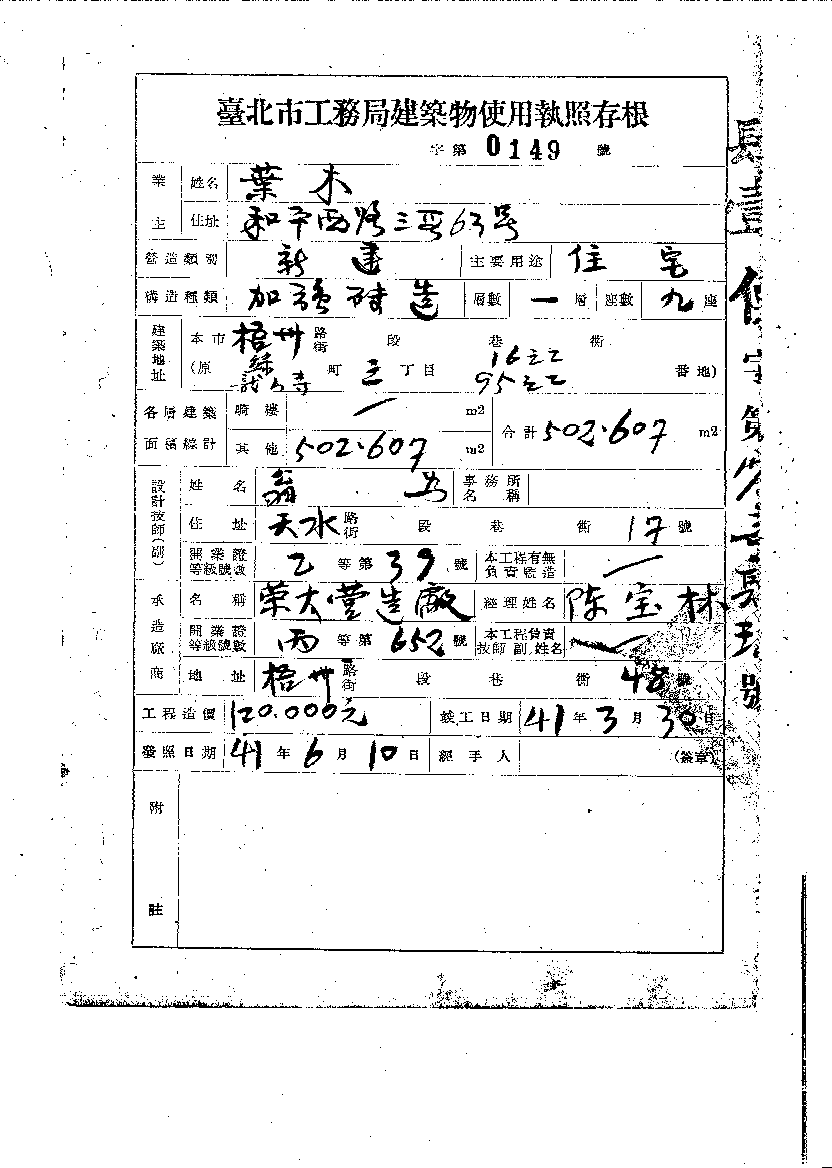 臺北市工務局建築物使用執照存根
字第 0149 號
業主 姓名 葉木
住址 和平西路三段63号
營造類別 新建 主要用途 住宅
構造種類 加強磚造 層數 一層 座數 九座
建築地址 本市 梧州 路街 段 巷 衖
(原 町 三丁目 16之2 95之2 番地)
各層建築面積總計 騎樓 / m2 合計 502.607 m2
其他 502.607 m2
設計技師(副) 姓名 翁 事務所名稱
住址 天水 路街 段 巷 衖 17 號
開業證等級號數 乙等第 39 號 本工程有無負責監造 /
承造廠商 名稱 榮大營造廠 經理姓名 陈宝林
開業證等級號數 丙等第 652 號 本工程負責技師 副.姓名
地址 梧州 路街 段 巷 衖 48 號
工程造價 120.000元 竣工日期 41年3月30日
發照日期 41年6月10日 經手人 (簽章)
附註